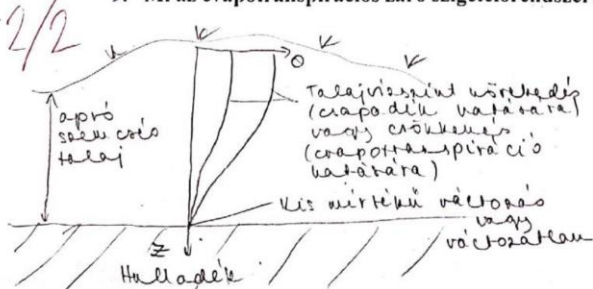 9. Mi az evapotranspirációs záró szigetelőrendszer
2/2
Θ
apró
szemcsés
talaj
Talajvízszint növekedés
(csapadék hatására)
vagy csökkenés
(evapotranspiráció
hatására)
Kis mértékű változás
vagy
változatlan
z
Hulladék